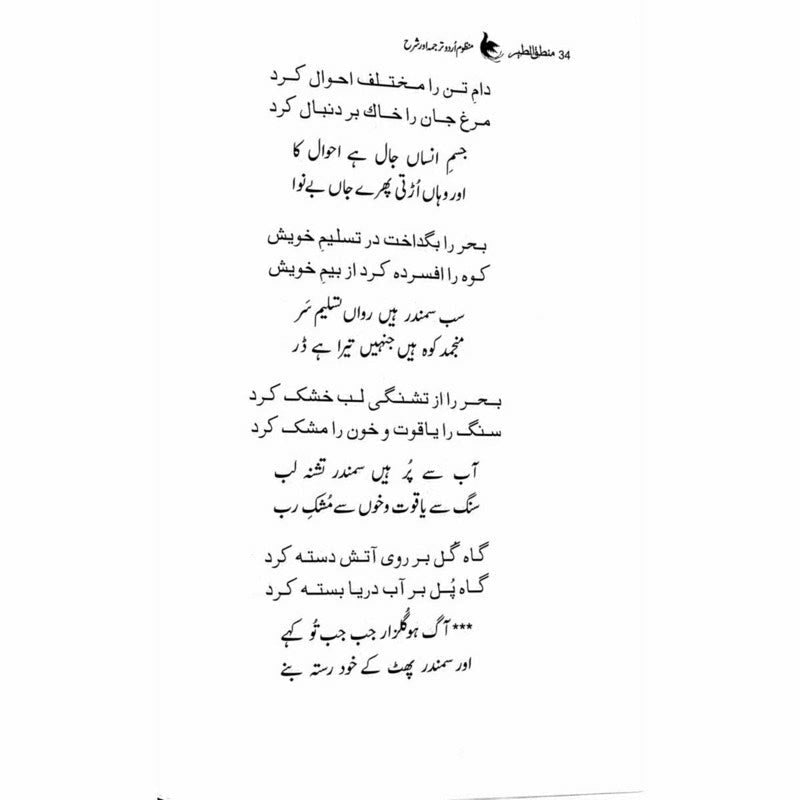 34 منطق الطیر منظوم اُردو ترجمہ اور شرح
دامِ تن را مختلف احوال کرد
مرغ جان را خاك بر دنبال کرد
جسمِ انساں جال ہے احوال کا
اور وہاں اُڑتی پھرے جاں بے نوا
بحر را بگداخت در تسلیمِ خویش
کوه را افسرده کرد از بیمِ خویش
سب سمندر ہیں رواں تسلیم سَر
منجمد کوہ ہیں جنہیں تیرا ہے ڈر
بحر را از تشنگی لب خشک کرد
سنگ را یاقوت و خون را مشک کرد
آب سے پُر ہیں سمندر تشنہ لب
سنگ سے یاقوت و خوں سے مُشکِ رب
گاه گُل بر روی آتش دسته کرد
گاه پُل بر آب دریا بسته کرد
***آگ ہو گُلزار جب جب تُو کہے
اور سمندر پھٹ کے خود رستہ بنے